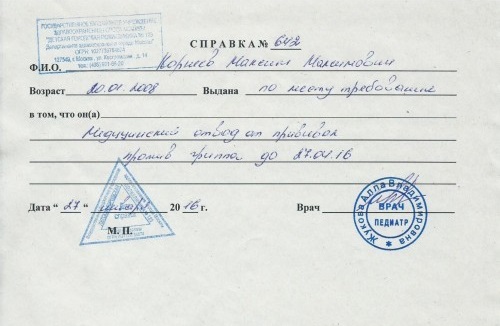 ГОСУДАРСТВЕННОЕ УЧРЕЖДЕНИЕ
СПРАВКА № 642
Ф.И.О. Максим Максимович
Возраст 20.01.2008 Выдана по месту требования
в том, что он(а)
Медицинский отвод от прививок
против гриппа до 27.04.16
Дата “ 27 ” января 2016 г. Врач
М. П.
Жукова Алла Владимировна
ВРАЧ
ПЕДИАТР